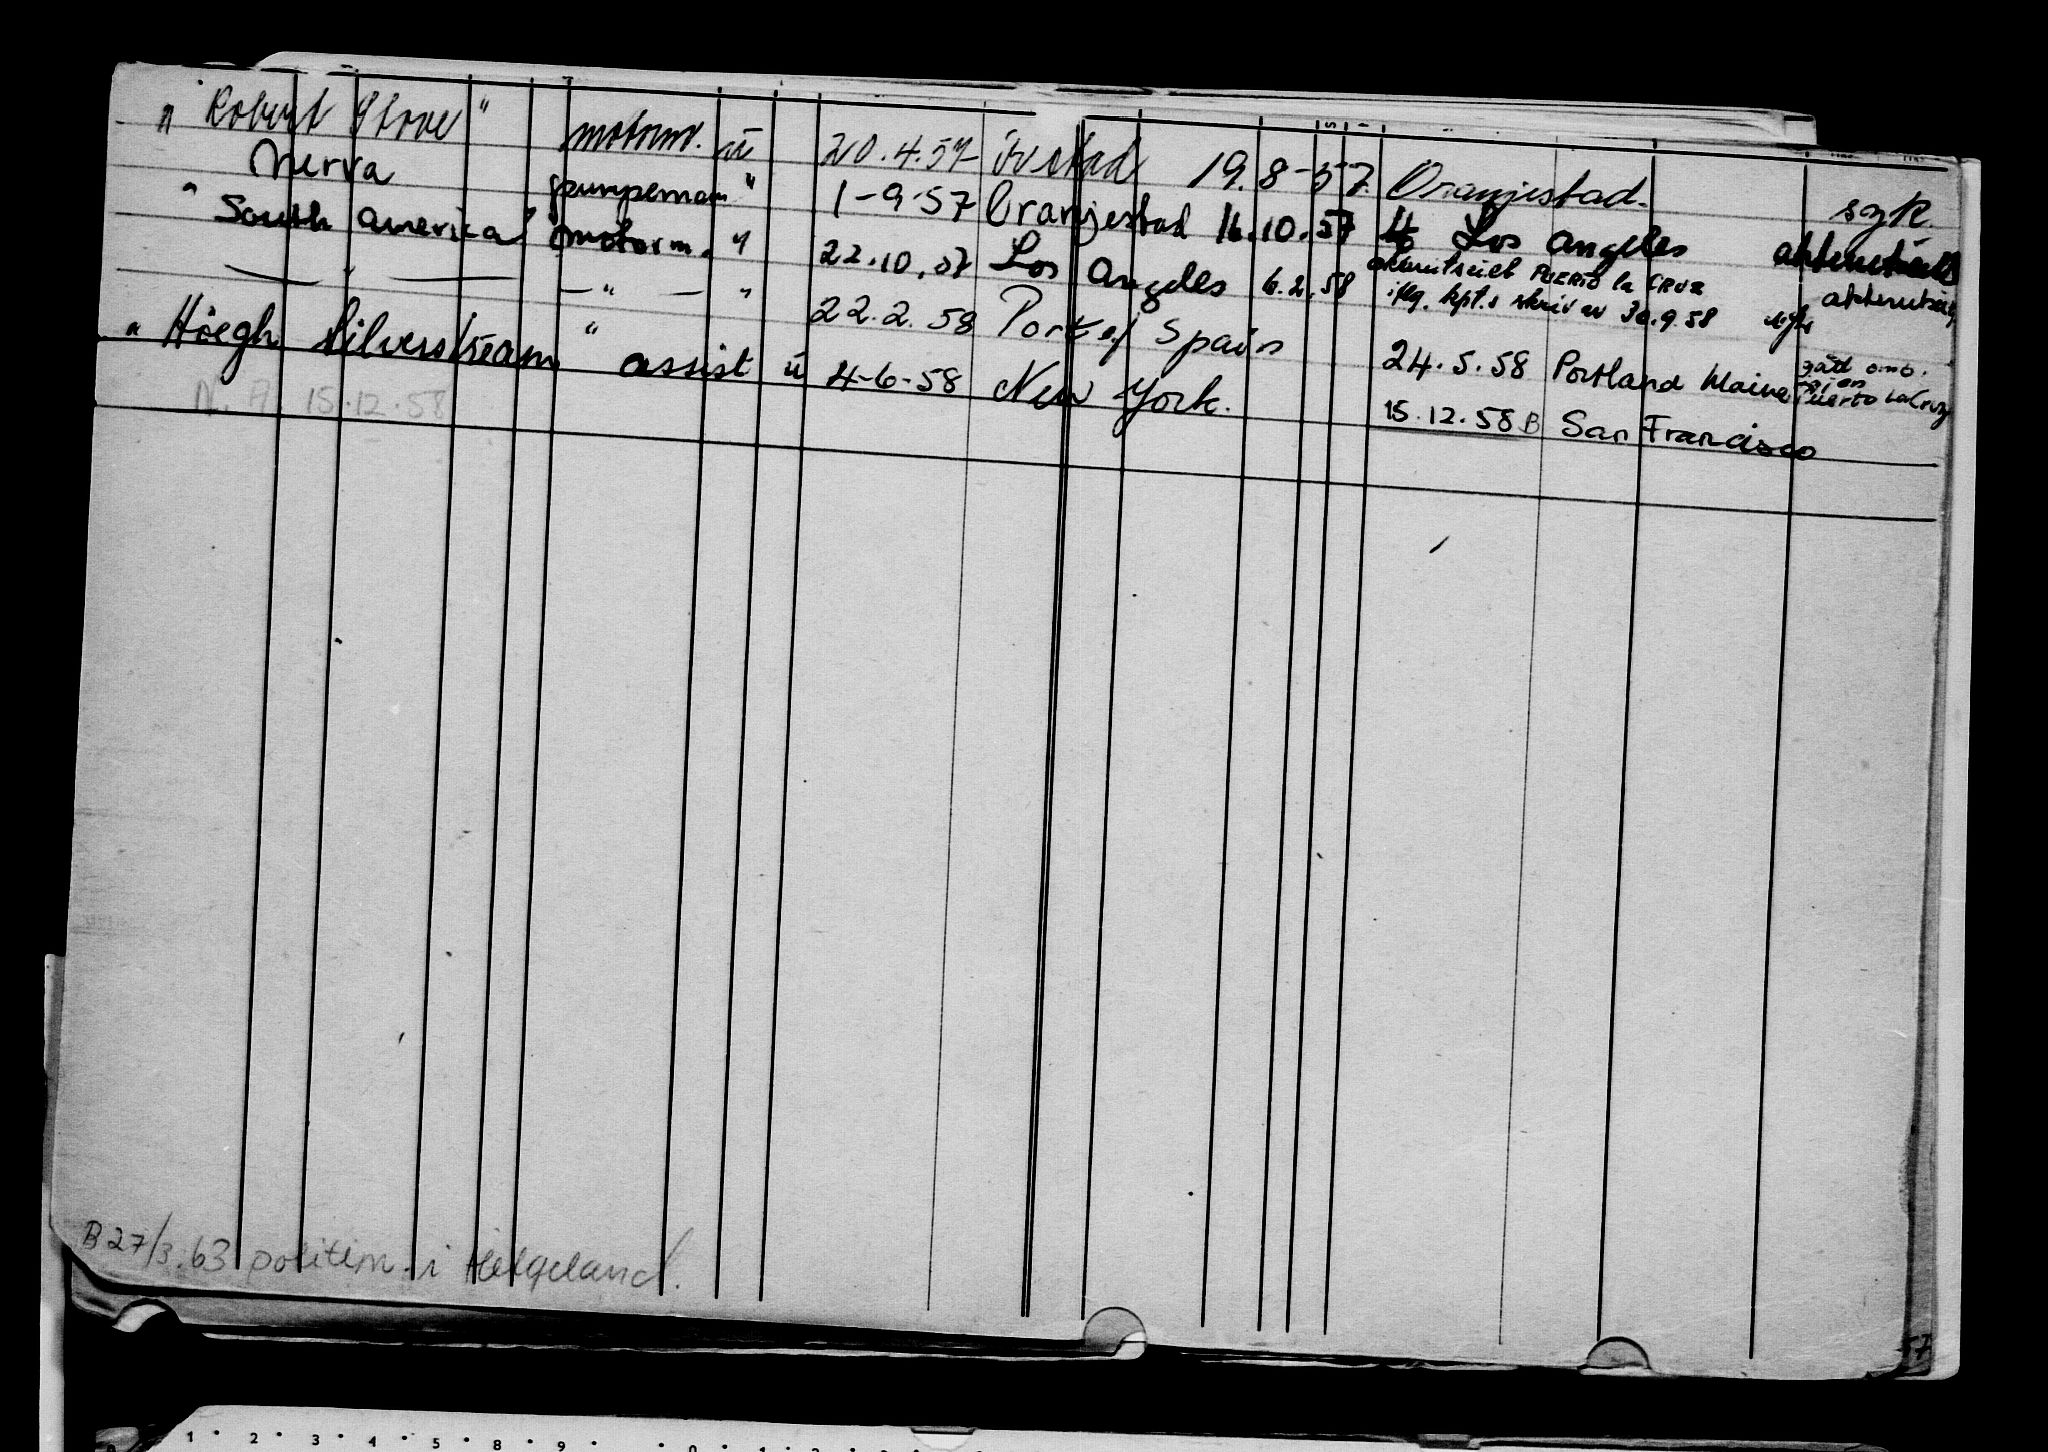 " Robert Stove " motorm. ü 20.4.57 Ivstad 19.8-57. Oranjestad. syk
Nerva pumpemann " 1-9-57 Oranjestad 16.10.57 Los Angeles
" South America " motorm. " 22.10.57 Los Angeles 6.2.58 Puerto la Cruz
— " — — " — " 22.2.58 Port of Spain 24.5.58 Portland Maine
iflg. kpt.s skriv av 30.9.58
Puerto La Cruz
" Höegh Silverstream " assist ü 4-6-58 New York. 15.12.58 B San Francisco
N. A 15.12.58
B 27/3.63 politim. i Helgeland.
57
1 2 3 4 5 8 9